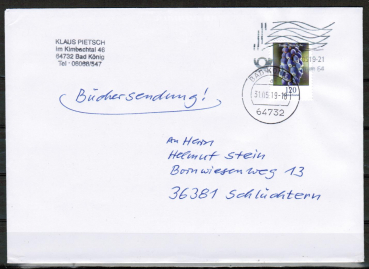 KLAUS PIETSCH
Im Kimbachtal 46
64732 Bad König
Tel
Büchersendung!
BAD
31.05.19-18
64732
120
19-21
An Herrn
Helmut Stein
Bornwiesenweg 13
36381 Schlüchtern